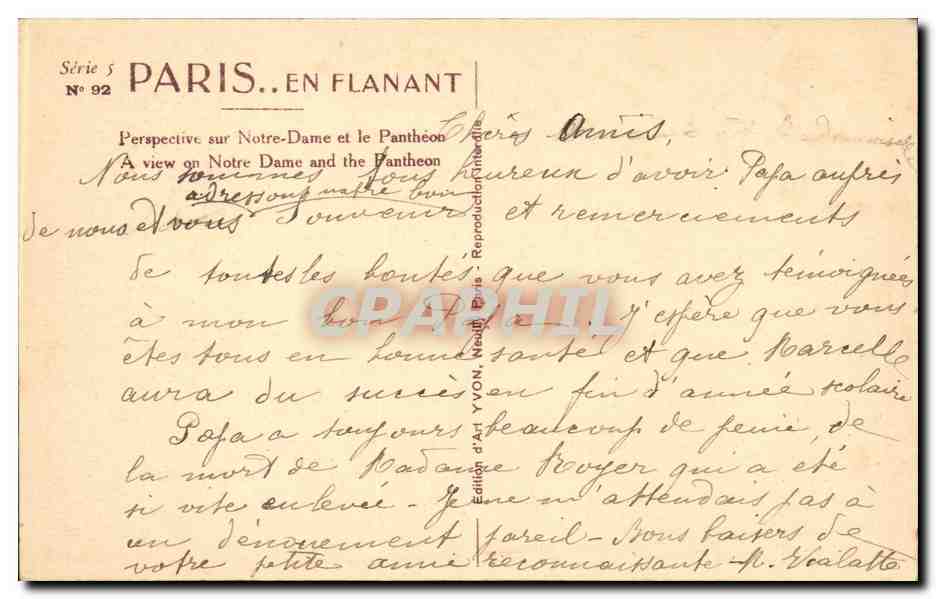 Série 5
Nº 92
PARIS.. EN FLANANT
Perspective sur Notre-Dame et le Panthéon
A view on Notre Dame and the Pantheon
Edition d'Art YVON, Neuilly Paris - Reproduction interdite
CPAPHIL
Chères Amis,
Nous sommes tous heureux d'avoir Papa auprès
de nous et vous adressons notre bon souvenir et remerciements
de toutes les bontés que vous avez témoignées
à mon bon Papa. J'espère que vous
êtes tous en bonne santé et que Marcelle
aura du succès en fin d'année scolaire
Papa a toujours beaucoup de peine, de
la mort de Madame Royer qui a été
si vite enlevée - Je ne m'attendais pas à
un dénouement pareil - Bons baisers de
votre petite amie reconnaissante M. Vialatte